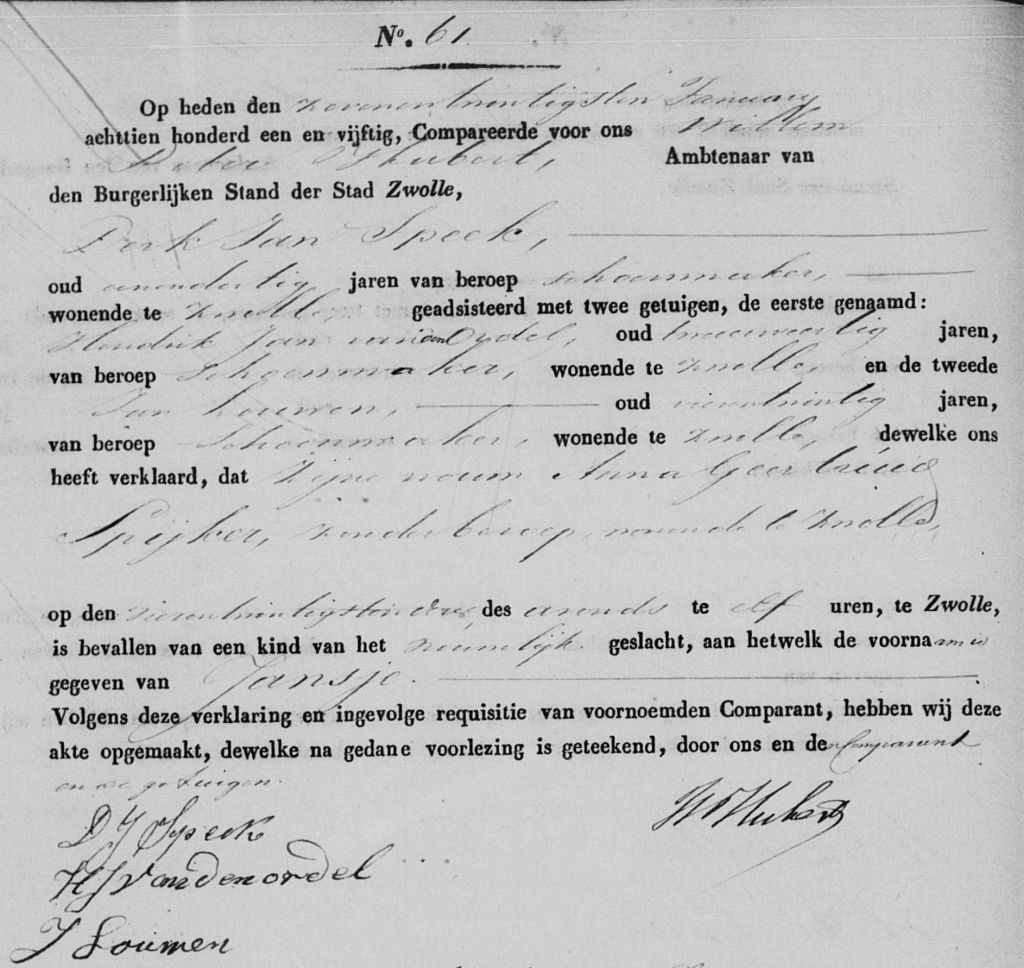 No. 61.
Op heden den zevenentwintigsten January
achttien honderd een en vijftig, Compareerde voor ons Willem
Hubert, Ambtenaar van
den Burgerlijken Stand der Stad Zwolle,
Derk Jan Speck,
oud eenendertig jaren van beroep schoenmaker,
wonende te Zwolle, geadsisteerd met twee getuigen, de eerste genaamd:
Hendrik Jan van den Ordel, oud tweeenveertig jaren,
van beroep Schoenmaker, wonende te Zwolle, en de tweede
Jan Louwen, oud vierentwintig jaren,
van beroep Schoenmaker, wonende te Zwolle, dewelke ons
heeft verklaard, dat zijne vrouw Anna Geertruid
Spijker, zonder beroep, wonende te Zwolle,
op den vierentwintigsten dezer, des avonds te elf uren, te Zwolle,
is bevallen van een kind van het vrouwelijk geslacht, aan hetwelk de voornaam is
gegeven van Jansje.
Volgens deze verklaring en ingevolge requisitie van voornoemden Comparant, hebben wij deze
akte opgemaakt, dewelke na gedane voorlezing is geteekend, door ons en den Comparant
en de getuigen.
D J Speck
W Hubert
H J van den ordel
J Louwen